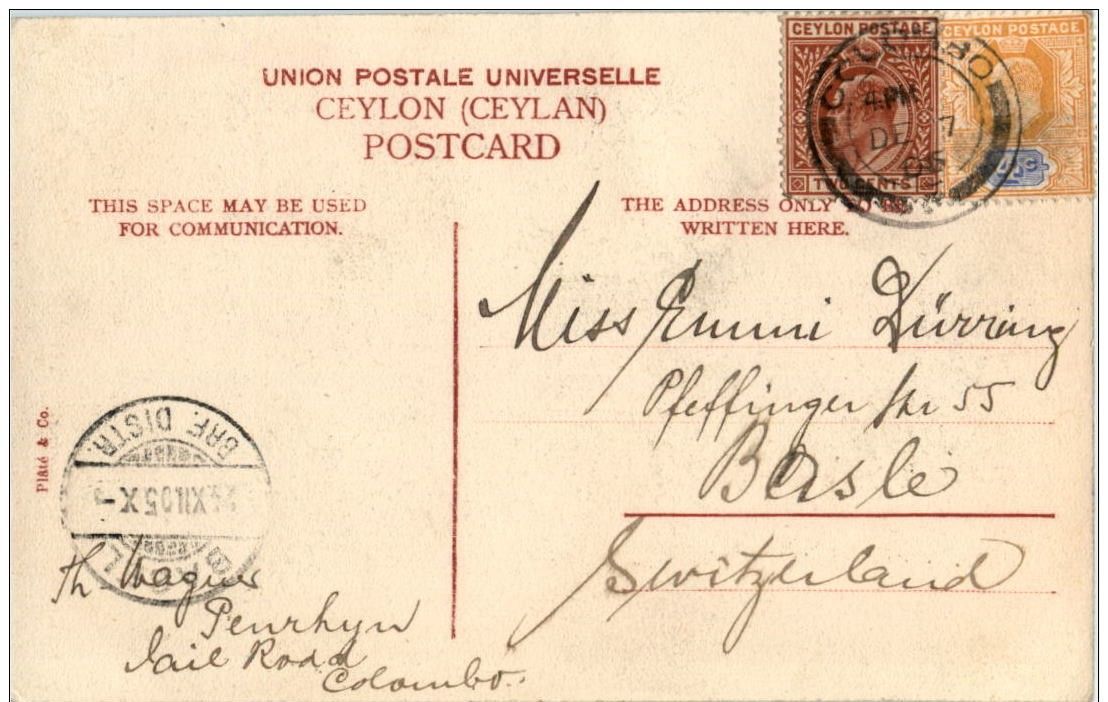 UNION POSTALE UNIVERSELLE
CEYLON (CEYLAN)
POSTCARD
CEYLON POSTAGE
TWO CENTS
CEYLON POSTAGE
COLOMBO
4.PM
DE 7
05
THIS SPACE MAY BE USED
FOR COMMUNICATION.
THE ADDRESS ONLY TO BE
WRITTEN HERE.
Miss Emmi Dürring
Pfeffinger Str 55
Basle
Switzerland
Platé & Co.
BRF. DISTR.
XII.05 X
Th Wagner
Penrhyn
Jail Road
Colombo.